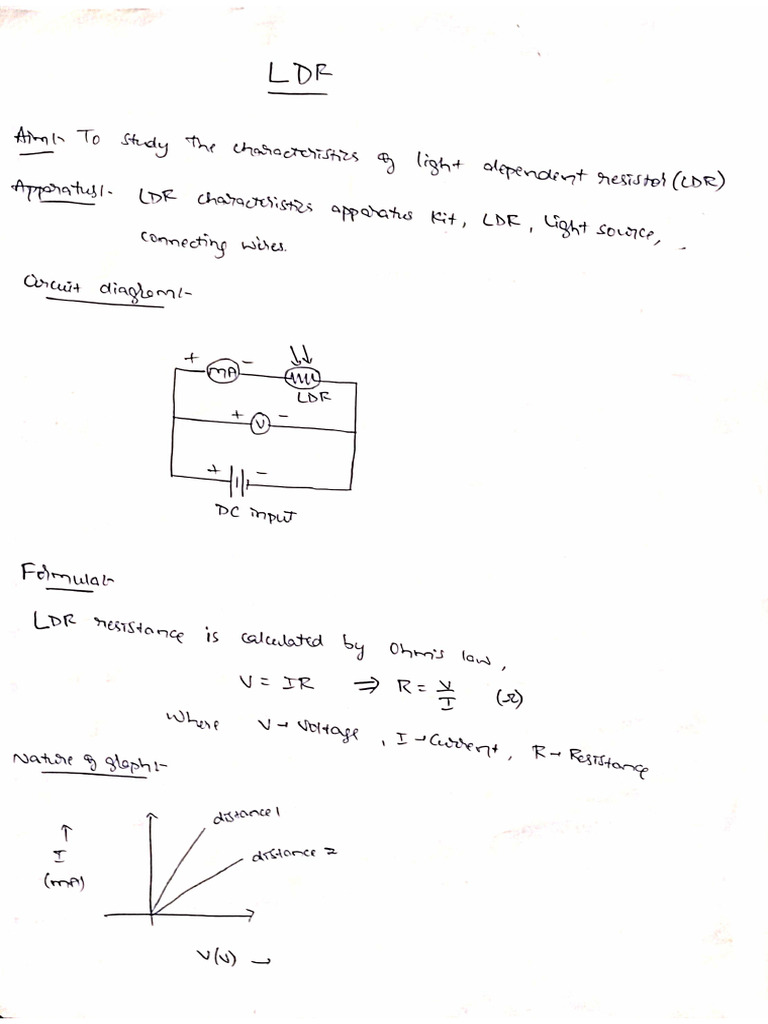 LDR
Aim:- To study the characteristics of light dependent resistor (LDR)
Apparatus:- LDR characteristics apparatus kit, LDR, Light source,
connecting wires.
Circuit diagram:-
+ mA -
LDR
+ V -
+ -
DC input
Formula:-
LDR resistance is calculated by Ohm's law,
V = IR ⇒ R = V/I (Ω)
Where V → Voltage, I → Current, R → Resistance
Nature of graph:-
distance 1
distance 2
↑
I
(mA)
V(V) →